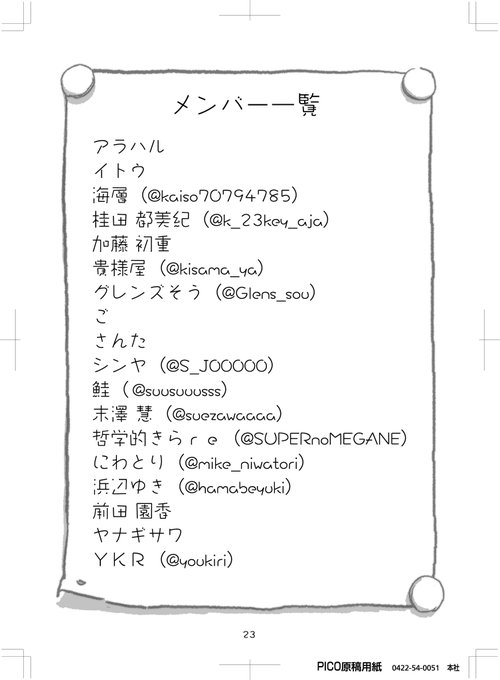 メンバー一覧
アラハル
イトウ
海層（@kaiso70794785）
桂田 都美紀（@k_23key_aja）
加藤 初重
貴様屋（@kisama_ya）
グレンズそう（@Glens_sou）
ご
さんた
シンヤ（@S_JOOOOO）
鮭（@suusuuusss）
末澤 慧（@suezawaaaa）
哲学的きらｒｅ（@SUPERnoMEGANE）
にわとり（@mike_niwatori）
浜辺ゆき（@hamabeyuki）
前田 園香
ヤナギサワ
ＹＫＲ（@youkiri）
23
PICO原稿用紙 0422-54-0051 本社